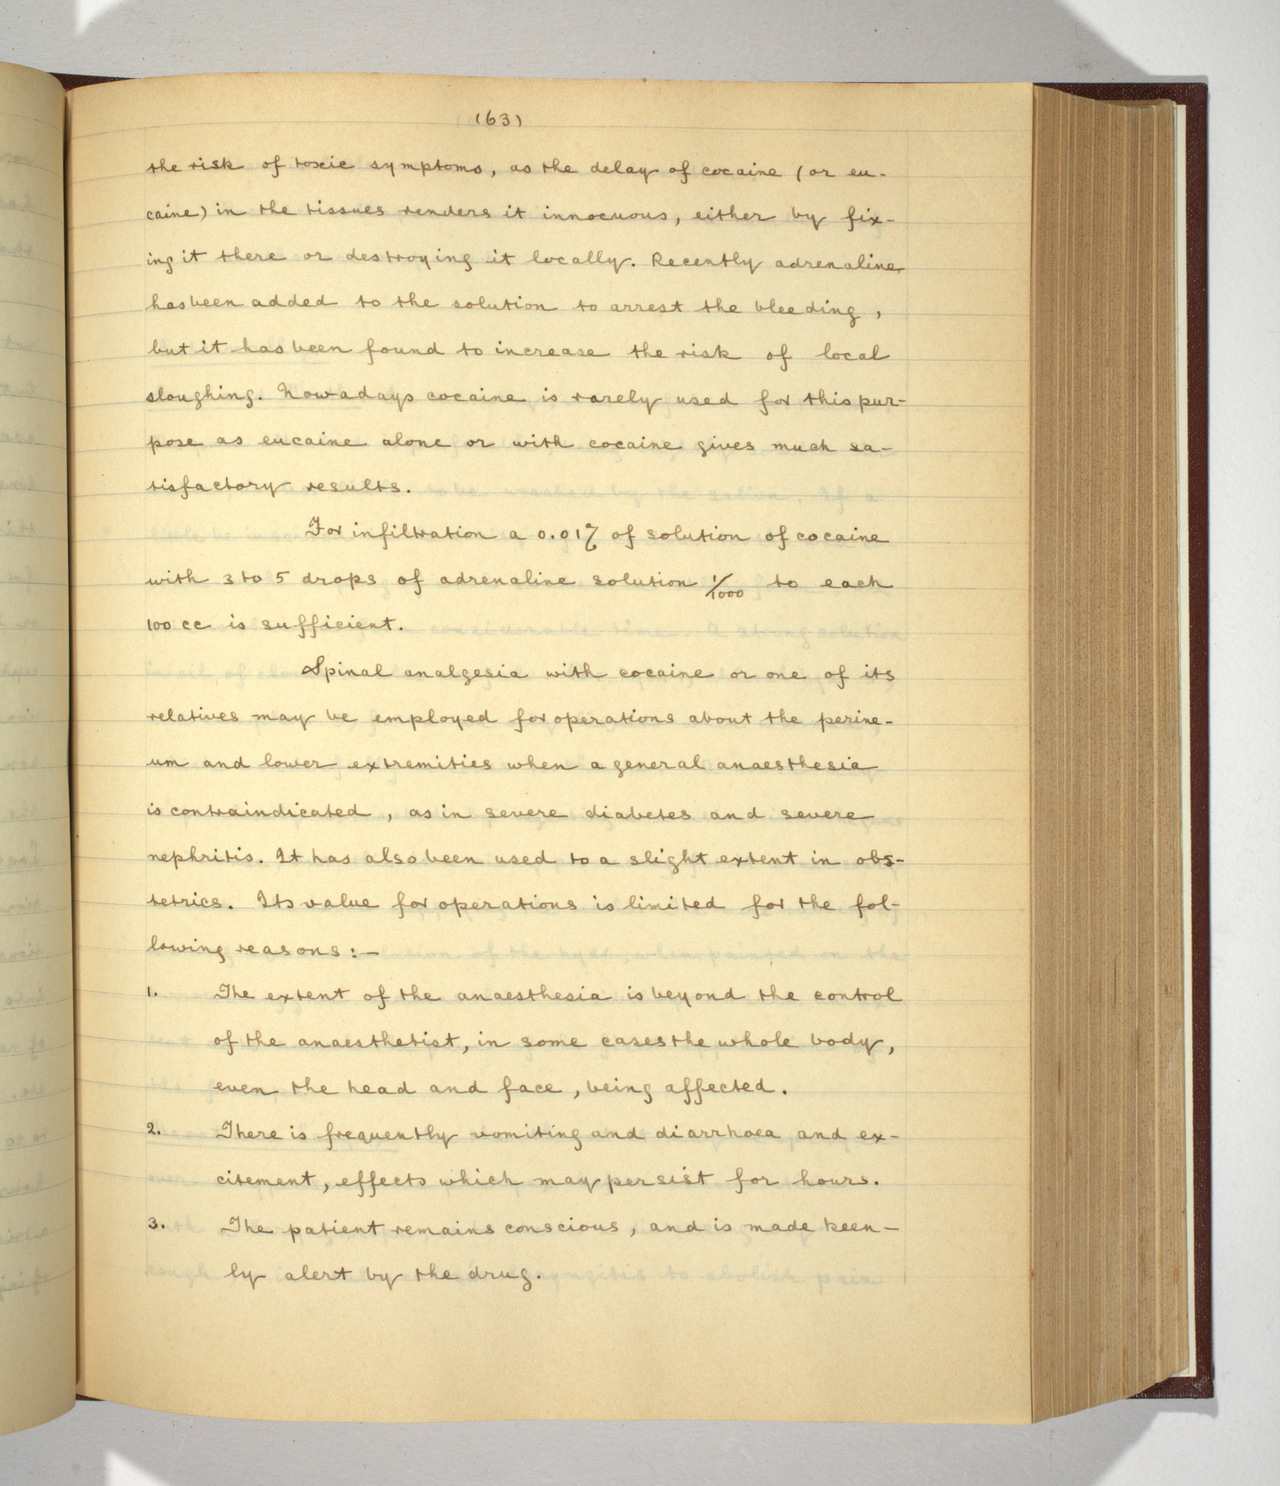 (63)
the risk of toxic symptoms, as the delay of cocaine (or eu-
caine) in the tissues renders it innocuous, either by fix-
ing it there or destroying it locally. Recently adrenaline
has been added to the solution to arrest the bleeding,
but it has been found to increase the risk of local
sloughing. Nowadays cocaine is rarely used for this pur-
pose as eucaine alone or with cocaine gives much sa-
tisfactory results.
For infiltration a 0.01% of solution of cocaine
with 3 to 5 drops of adrenaline solution 1/1000 to each
100 cc is sufficient.
Spinal analgesia with cocaine or one of its
relatives may be employed for operations about the perine-
um and lower extremities when a general anaesthesia
is contraindicated, as in severe diabetes and severe
nephritis. It has also been used to a slight extent in obs-
tetrics. Its value for operations is limited for the fol-
lowing reasons:—
1. The extent of the anaesthesia is beyond the control
of the anaesthetist, in some cases the whole body,
even the head and face, being affected.
2. There is frequently vomiting and diarrhoea and ex-
citement, effects which may persist for hours.
3. The patient remains conscious, and is made keen-
ly alert by the drug.